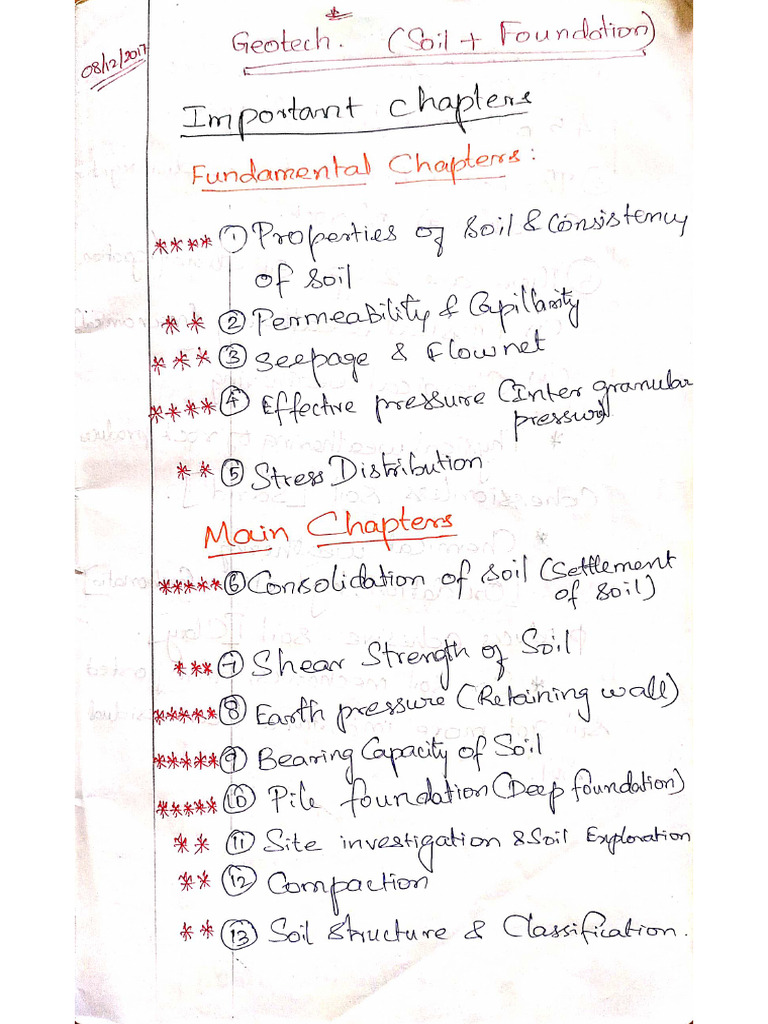 *
08/12/2017
Geotech. (Soil + Foundation)
Important Chapters
Fundamental Chapters:
**** ① Properties of Soil & Consistency
of Soil
** ② Permeability & Capillarity
*** ③ Seepage & Flownet
**** ④ Effective pressure (Inter granular
pressure)
** ⑤ Stress Distribution
Main Chapters
***** ⑥ Consolidation of Soil (Settlement
of Soil)
*** ⑦ Shear Strength of Soil
***** ⑧ Earth pressure (Retaining wall)
***** ⑨ Bearing Capacity of Soil
***** ⑩ Pile foundation (Deep foundation)
** ⑪ Site investigation & Soil Exploration
** ⑫ Compaction
** ⑬ Soil Structure & Classification.